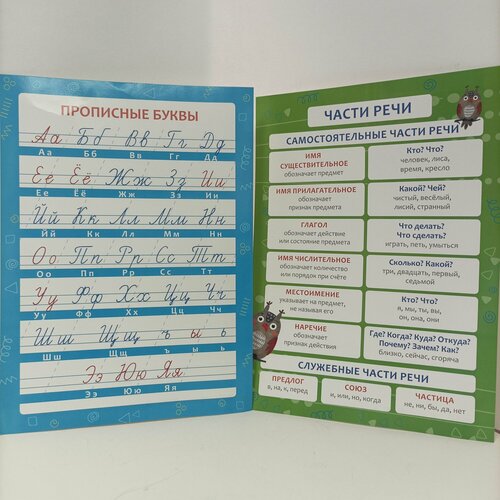 ПРОПИСНЫЕ БУКВЫ
Аа Бб Вв Гг Дд
Аа Бб Вв Гг Дд
Ее Ёё Жж Зз Ии
Ее Ёё Жж Зз Ии
Йй Кк Лл Мм Нн
Йй Кк Лл Мм Нн
Оо Пп Рр Сс Тт
Оо Пп Рр Сс Тт
Уу Фф Хх Цц Чч
Уу Фф Хх Цц Чч
Шш Щщ ъ ы ь
Шш Щщ ъ ы ь
Ээ Юю Яя
Ээ Юю Яя
ЧАСТИ РЕЧИ
САМОСТОЯТЕЛЬНЫЕ ЧАСТИ РЕЧИ
ИМЯ
СУЩЕСТВИТЕЛЬНОЕ
обозначает предмет
Кто? Что?
человек, лиса,
время, кресло
ИМЯ ПРИЛАГАТЕЛЬНОЕ
обозначает
признак предмета
Какой? Чей?
чистый, весёлый,
лисий, странный
ГЛАГОЛ
обозначает действие
или состояние предмета
Что делать?
Что сделать?
играть, петь, умыться
ИМЯ ЧИСЛИТЕЛЬНОЕ
обозначает количество
или порядок при счёте
Сколько? Какой?
три, двадцать, первый,
седьмой
МЕСТОИМЕНИЕ
указывает на предмет,
не называя его
Кто? Что?
я, мы, ты, вы,
он, она, они
НАРЕЧИЕ
обозначает
признак действия
Где? Когда? Куда? Откуда?
Почему? Зачем? Как?
близко, сейчас, сгоряча
СЛУЖЕБНЫЕ ЧАСТИ РЕЧИ
ПРЕДЛОГ
в, на, к, перед
СОЮЗ
и, или, но, когда
ЧАСТИЦА
не, ни, бы, да, нет